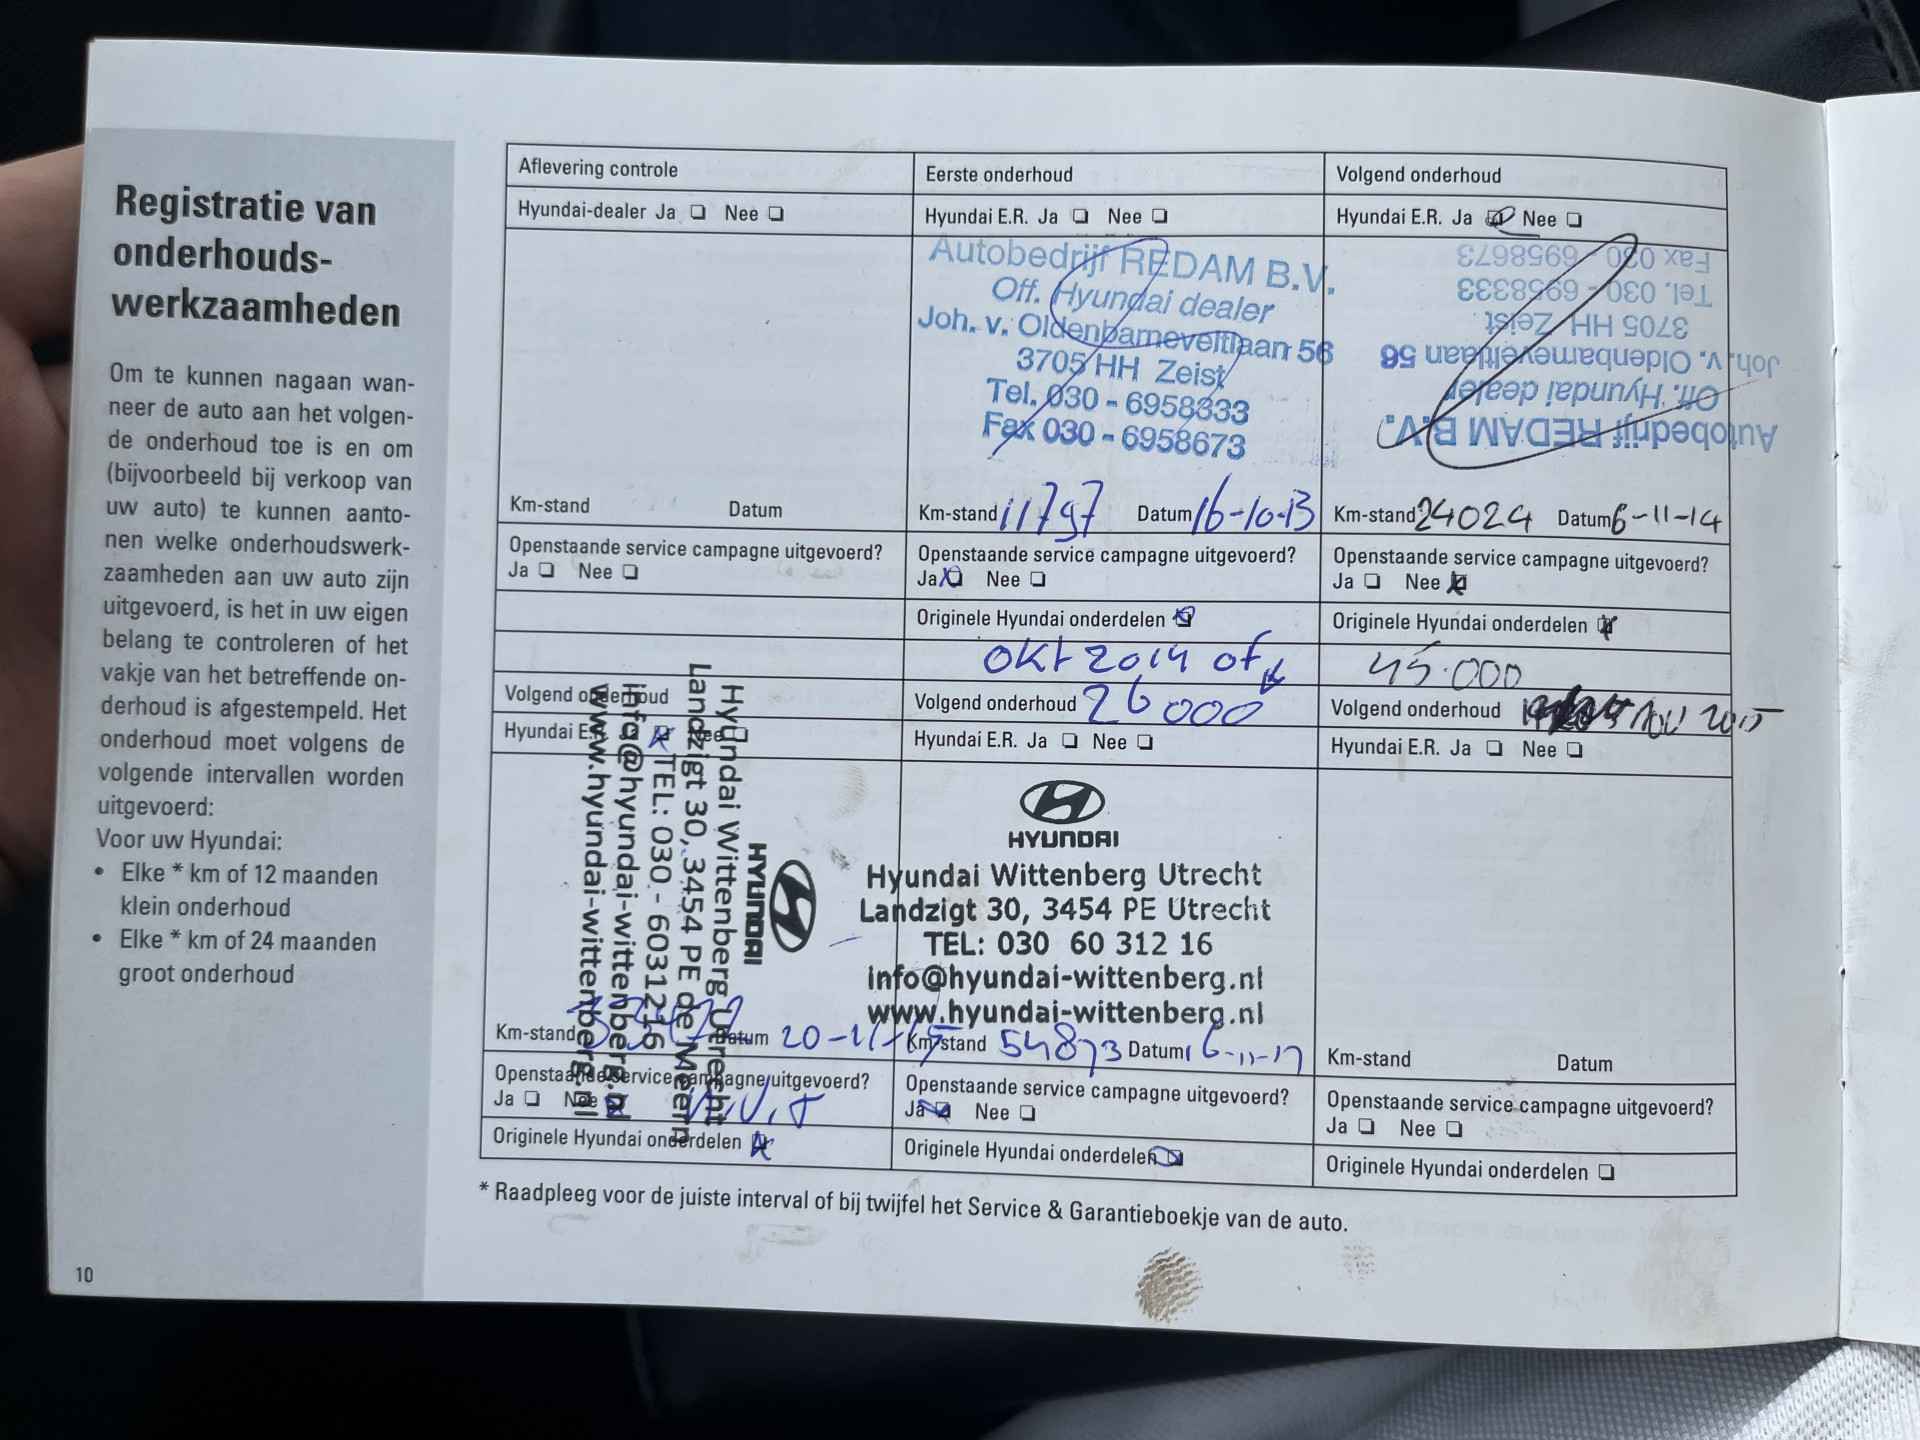 Registratie van
onderhouds-
werkzaamheden
Om te kunnen nagaan wan-
neer de auto aan het volgen-
de onderhoud toe is en om
(bijvoorbeeld bij verkoop van
uw auto) te kunnen aanto-
nen welke onderhoudswerk-
zaamheden aan uw auto zijn
uitgevoerd, is het in uw eigen
belang te controleren of het
vakje van het betreffende on-
derhoud is afgestempeld. Het
onderhoud moet volgens de
volgende intervallen worden
uitgevoerd:
Voor uw Hyundai:
• Elke * km of 12 maanden
klein onderhoud
• Elke * km of 24 maanden
groot onderhoud
10
Aflevering controle
Hyundai-dealer Ja ❏ Nee ❏
Km-stand Datum
Openstaande service campagne uitgevoerd?
Ja ❏ Nee ❏
Eerste onderhoud
Hyundai E.R. Ja ❏ Nee ❏
Autobedrijf REDAM B.V.
Off. Hyundai dealer
Joh. v. Oldenbarneveltlaan 56
3705 HH Zeist
Tel. 030 - 6958333
Fax 030 - 6958673
Km-stand 11797 Datum 16-10-13
Openstaande service campagne uitgevoerd?
Ja ❏ Nee ❏
Originele Hyundai onderdelen ❏
okt 2014 of
Volgend onderhoud
Hyundai E.R. Ja ❏ Nee ❏
Km-stand 24024 Datum 6-11-14
Autobedrijf REDAM B.V.
Off. Hyundai dealer
Joh. v. Oldenbarneveltlaan 56
3705 HH Zeist
Tel. 030 - 6958333
Fax 030 - 6958673
Openstaande service campagne uitgevoerd?
Ja ❏ Nee ❏
Originele Hyundai onderdelen ❏
45.000
Volgend onderhoud
Hyundai E.R. Ja Nee
Hyundai Wittenberg Utrecht
Landzigt 30, 3454 PE de Meern
TEL: 030 - 6031216
info@hyundai-wittenberg.nl
www.hyundai-wittenberg.nl
HYUNDAI
Km-stand Datum 20-11-15
Openstaande service campagne uitgevoerd?
Ja ❏ Nee
Originele Hyundai onderdelen ❏
Volgend onderhoud 26000
Hyundai E.R. Ja ❏ Nee ❏
HYUNDAI
Hyundai Wittenberg Utrecht
Landzigt 30, 3454 PE Utrecht
TEL: 030 60 312 16
info@hyundai-wittenberg.nl
www.hyundai-wittenberg.nl
Km-stand 54873 Datum 16-11-17
Openstaande service campagne uitgevoerd?
Ja ❏ Nee ❏
Originele Hyundai onderdelen ❏
Volgend onderhoud nov 2015
Hyundai E.R. Ja ❏ Nee ❏
Km-stand Datum
Openstaande service campagne uitgevoerd?
Ja ❏ Nee ❏
Originele Hyundai onderdelen ❏
* Raadpleeg voor de juiste interval of bij twijfel het Service & Garantieboekje van de auto.